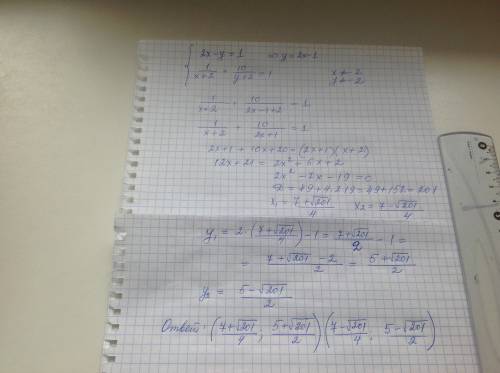 2x-y=1 ⇒ y=2x-1
1/(x+2) + 10/(y+2) = 1 x≠-2
y≠-2
1/(x+2) + 10/(2x-1+2) = 1,
1/(x+2) + 10/(2x+1) = 1
2x+1+10x+20=(2x+1)(x+2)
12x+21 = 2x²+5x+2
2x²-7x-19=0
D=49+4·2·19=49+152=201
x₁ = (7+√201)/4 x₂ = (7-√201)/4
y₁ = 2·((7+√201)/4) - 1 = (7+√201)/2 - 1 =
= (7+√201-2)/2 = (5+√201)/2
y₂ = (5-√201)/2
Ответ: ((7+√201)/4; (5+√201)/2) ((7-√201)/4; (5-√201)/2)